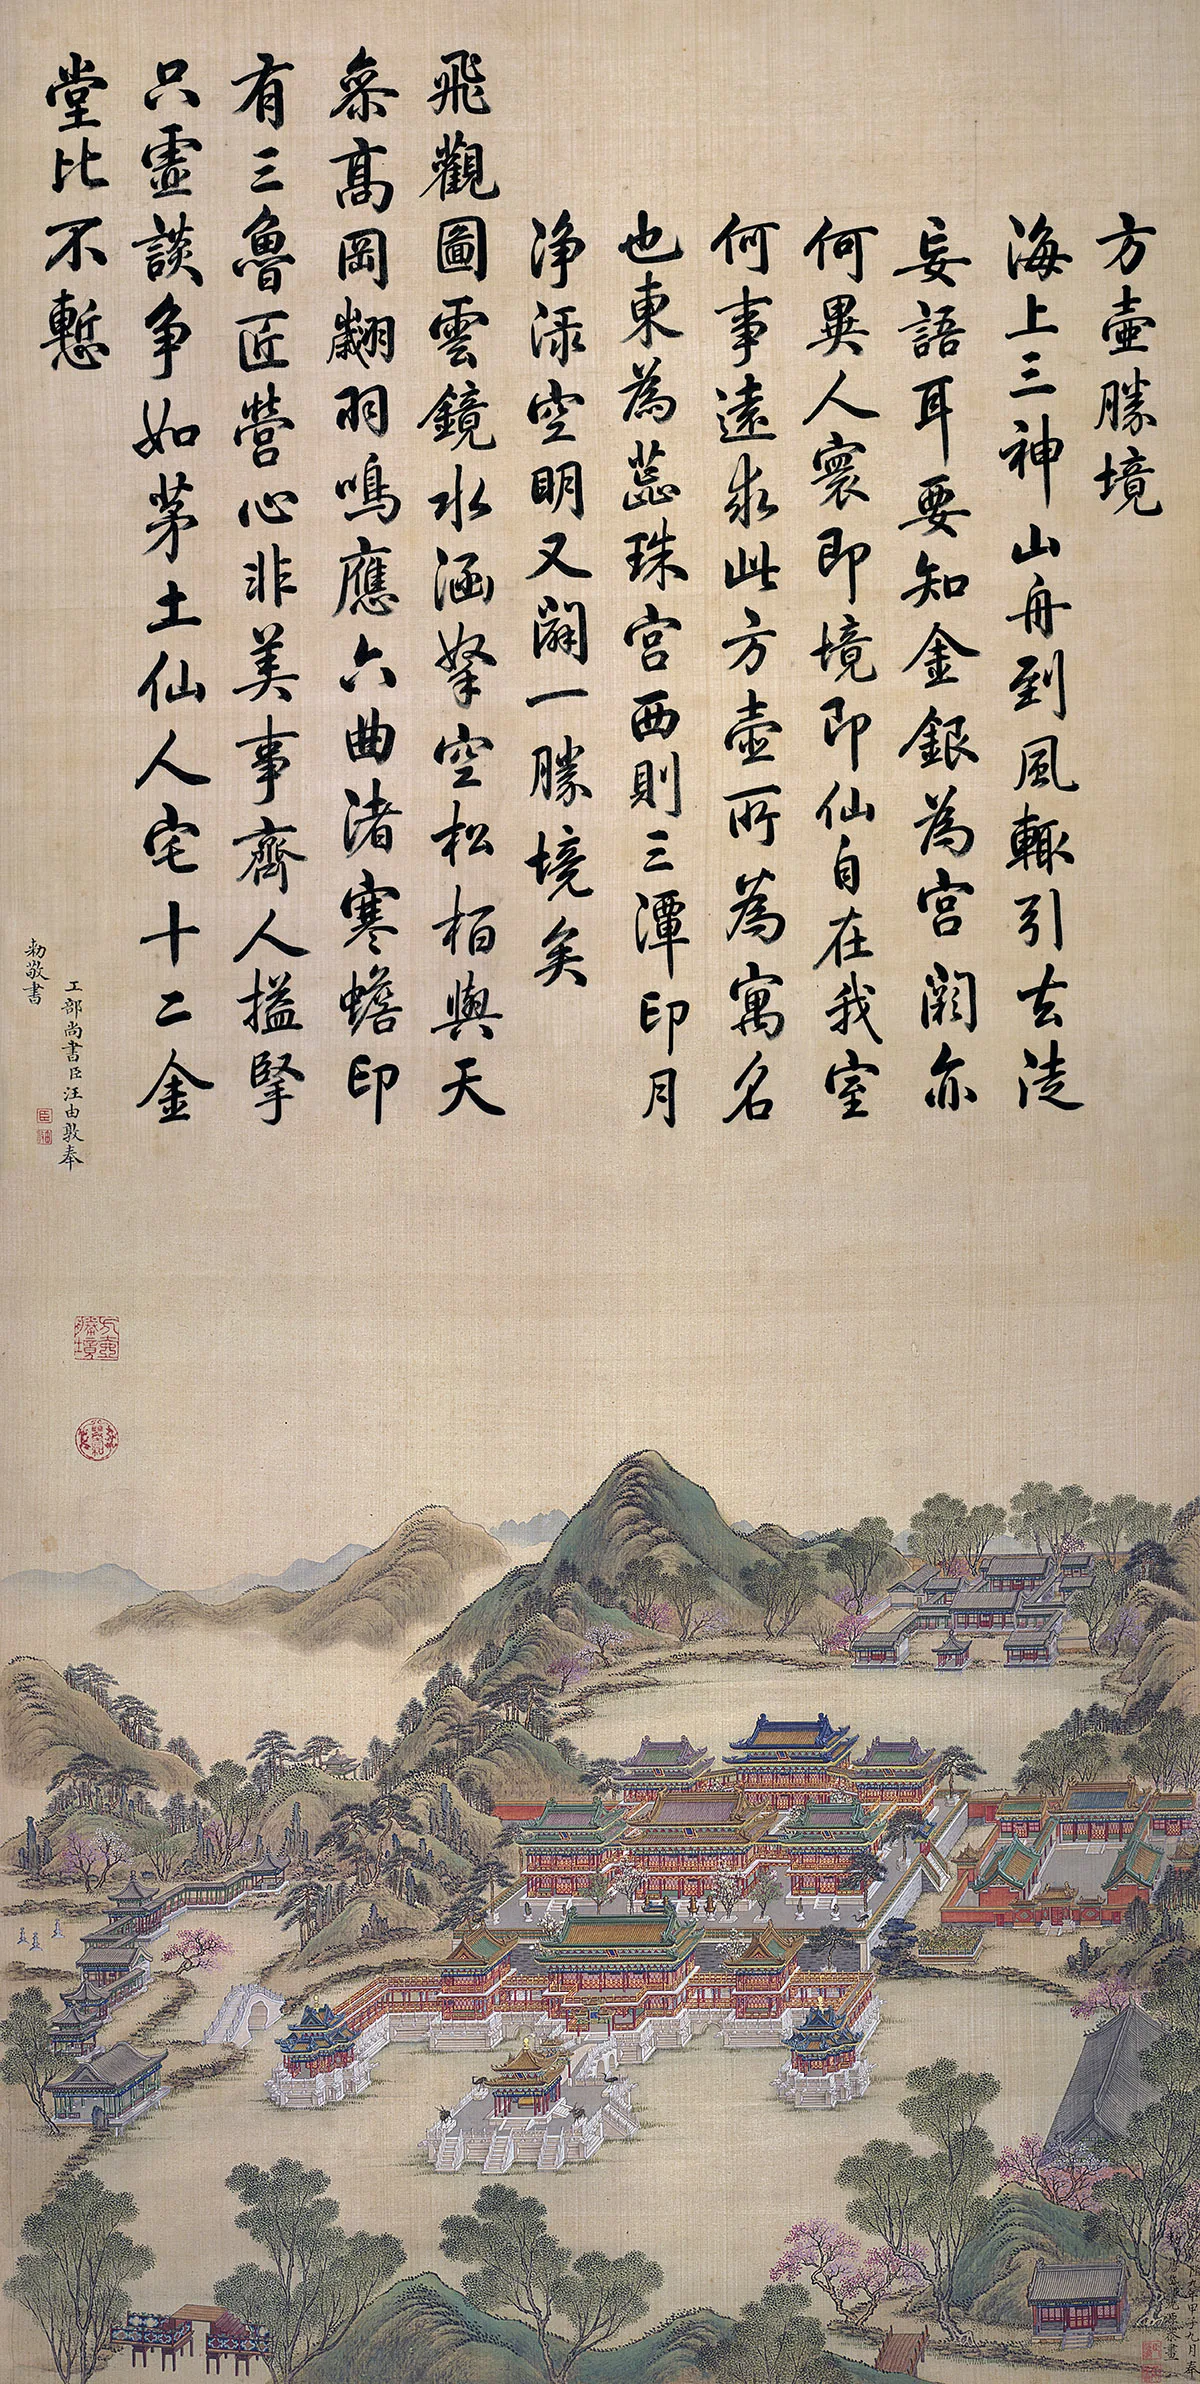 方壺勝境
海上三神山舟到風輙引去徒
妄語耳要知金銀為宮闕亦
何異人寰即境即仙自在我室
何事遠求此方壺所為寓名
也東為蕊珠宮西則三潭印月
净淥空明又闢一勝境矣
飛觀圖雲鏡水涵拏空松柏與天
叅高岡翽羽鳴應六曲渚寒蟾印
有三魯匠營心非美事齊人搤掔
只虛談争如茅土仙人宅十二金
堂比不慙
工部尚書臣汪由敦奉
勑敬書
方壺勝境
年甲子九月奉
恭畫